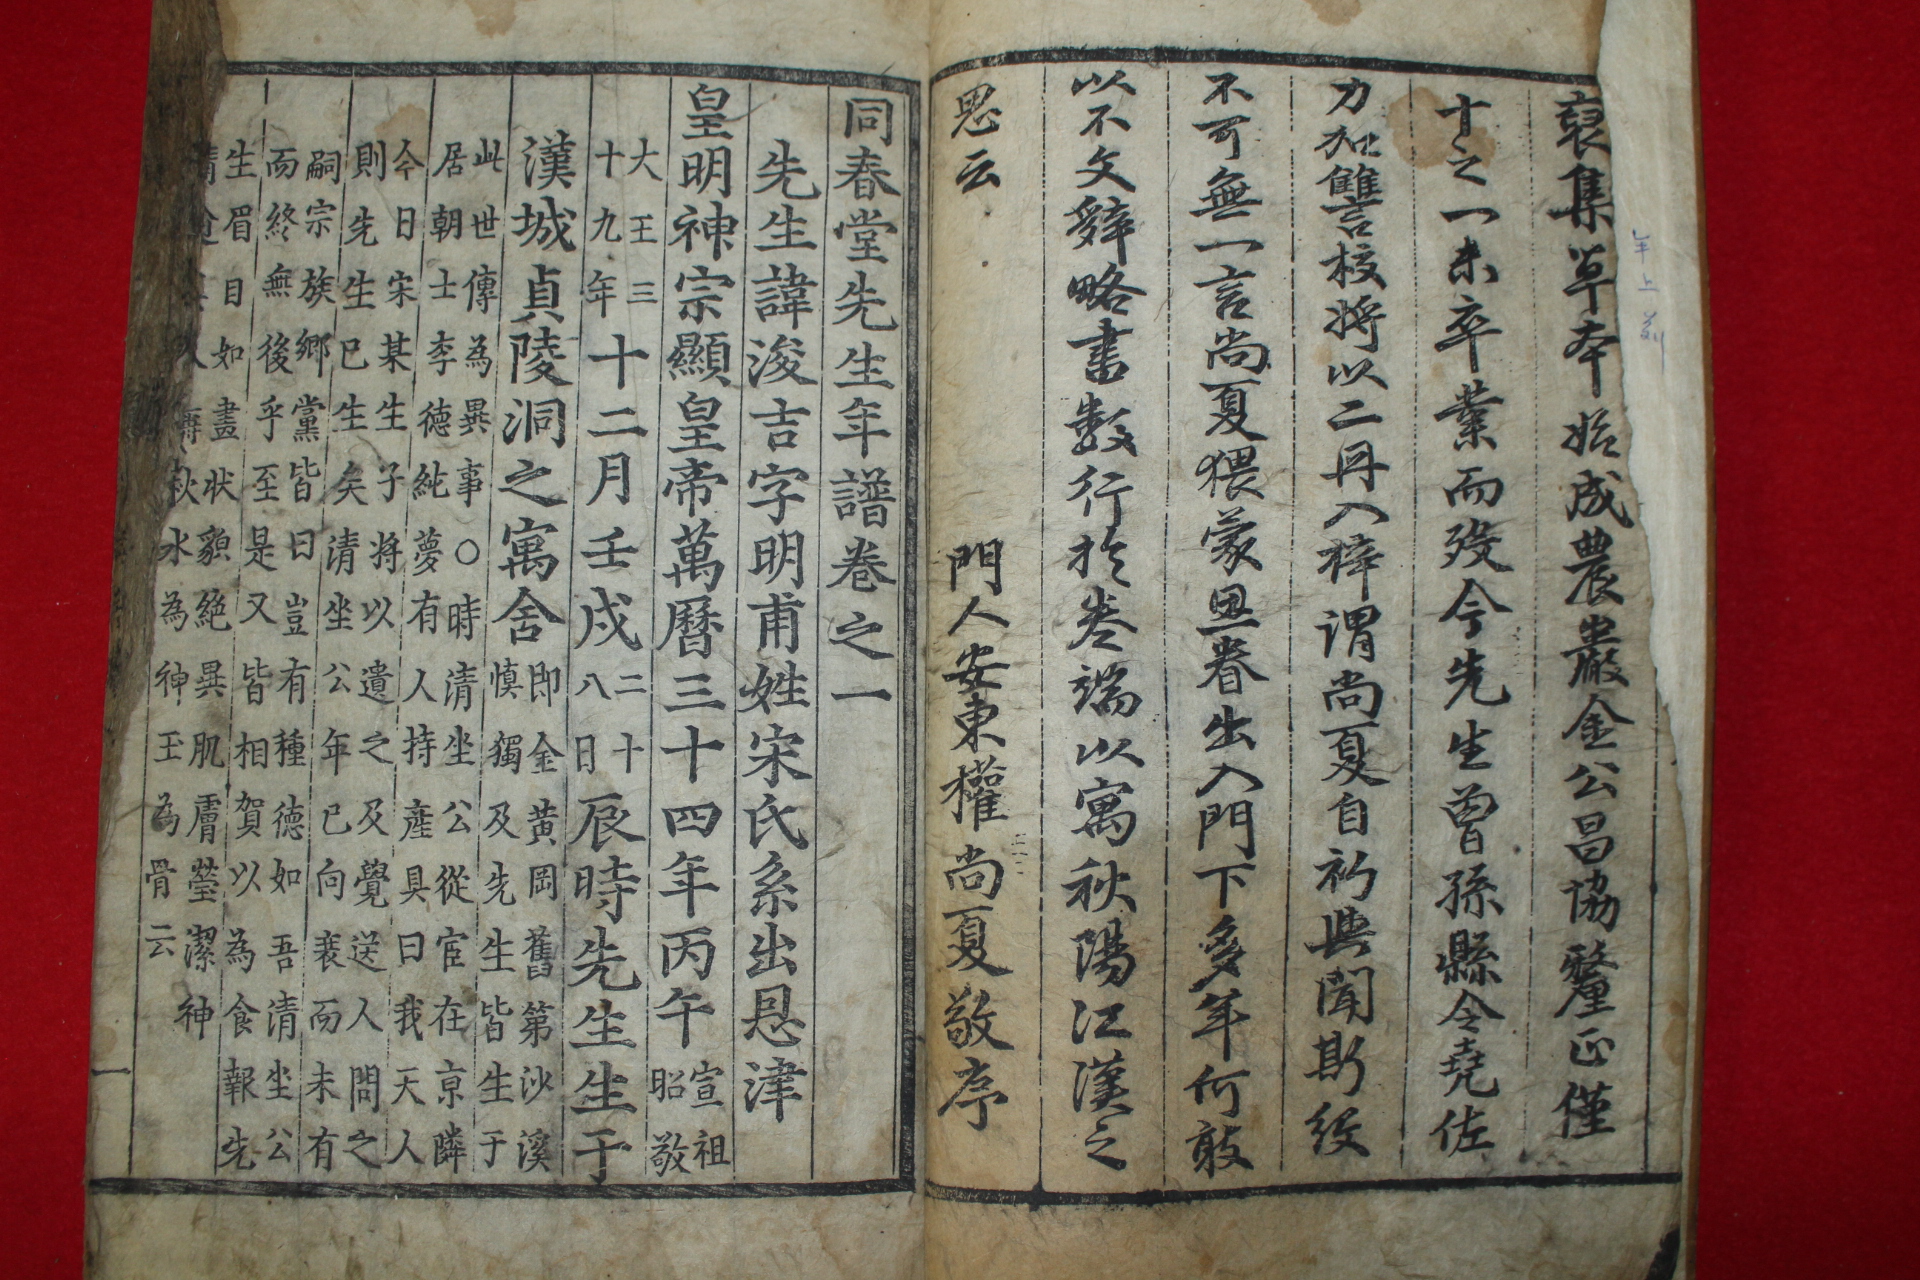 裒集草本始成農巖金公昌協釐正僅
十之一未卒業而歿今先生曾孫縣令堯佐
力加讐校將以二丹入梓謂尙夏自初與聞斯役
不可無一言尙夏猥蒙恩眷出入門下多年何敢
以不文辭略書數行於卷端以寓秋陽江漢之
思云
門人安東權尙夏敬序
同春堂先生年譜卷之一
先生諱浚吉字明甫姓宋氏系出恩津
皇明神宗顯皇帝萬曆三十四年丙午
宣祖
昭敬
大王三
十九年
十二月壬戌
二十
八日
辰時先生生于
漢城貞陵洞之寓舍
即金黃岡舊第沙溪
愼獨及先生皆生于
此世傳為異事○時清坐公從宦在京隣
居朝士李德純夢有人持產具曰我天人
今日宋某生子將以遺之及覺送人問之
則先生巳生矣清坐公年巳向衰而未有
嗣宗族鄉黨皆曰豈有種德如吾清坐公
而終無後乎至是又皆相賀以為食報先
生眉目如畫狀貌絶異肌膚瑩潔神
秋水為神玉為骨云
一